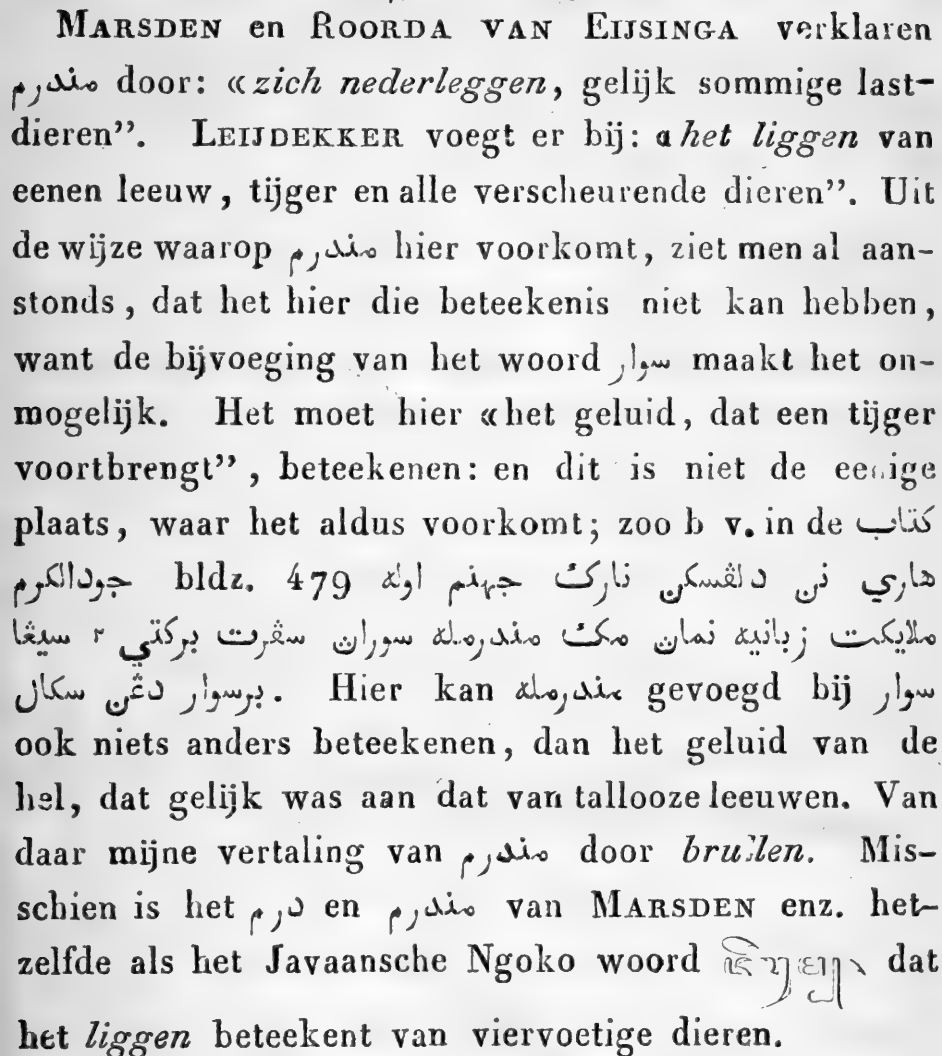 MARSDEN en ROORDA VAN EIJSINGA verklaren
مندرم door: «zich nederleggen, gelijk sommige last-
dieren”. LEIJDEKKER voegt er bij: «het liggen van
eenen leeuw, tijger en alle verscheurende dieren”. Uit
de wijze waarop مندرم hier voorkomt, ziet men al aan-
stonds, dat het hier die beteekenis niet kan hebben,
want de bijvoeging van het woord سوار maakt het on-
mogelijk. Het moet hier «het geluid, dat een tijger
voortbrengt”, beteekenen: en dit is niet de eenige
plaats, waar het aldus voorkomt; zoo b v. in de كتاب
جودالكرم bldz. 479 هاري نن دلڤسكن نارك جهنم اوله
ملايكت زبانيه نمان مكث مندرمله سوران سڤرت بركتي ٢ سيڠا
برسوار دڠن سكال. Hier kan مندرمله gevoegd bij سوار
ook niets anders beteekenen, dan het geluid van de
hel, dat gelijk was aan dat van tallooze leeuwen. Van
daar mijne vertaling van مندرم door brullen. Mis-
schien is het درم en مندرم van MARSDEN enz. het-
zelfde als het Javaansche Ngoko woord dat
het liggen beteekent van viervoetige dieren.